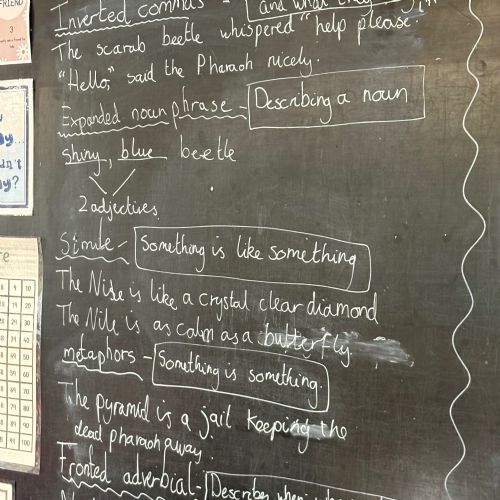 FRIEND
3
Inverted commas -
The scarab beetle whispered "help please."
"Hello," said the Pharaoh nicely.
Expanded noun phrase - Describing a noun
shiny, blue beetle
2 adjectives
Simile - Something is like something
The Nile is like a crystal clear diamond
The Nile is as calm as a butterfly
metaphors - Something is something.
The pyramid is a jail keeping the
dead pharaoh away.
Fronted adverbial - Describes when